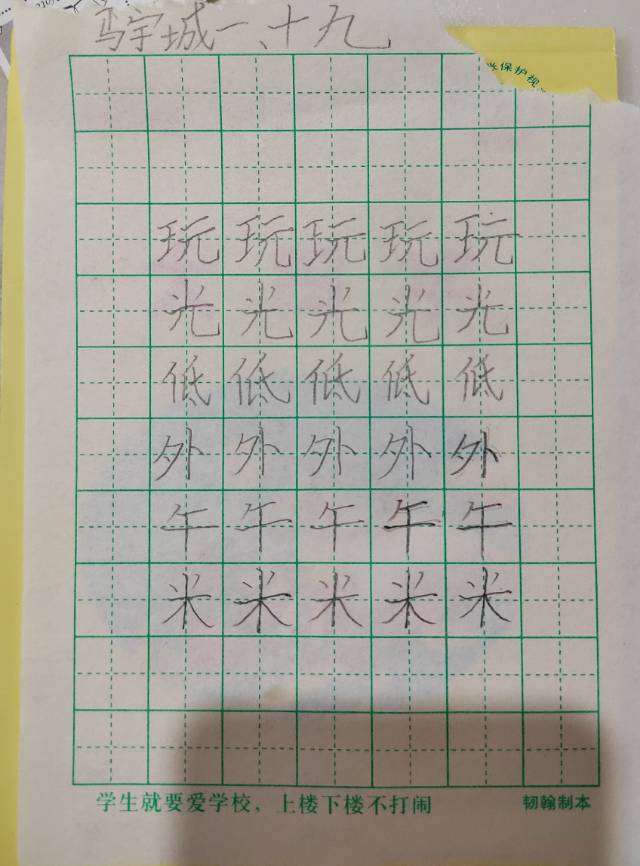 马宇城一、十九
保护视
玩玩玩玩玩
光光光光光
低低低低低
外外外外外
午午午午午
米米米米米
学生就要爱学校，上楼下楼不打闹 韧翰制本